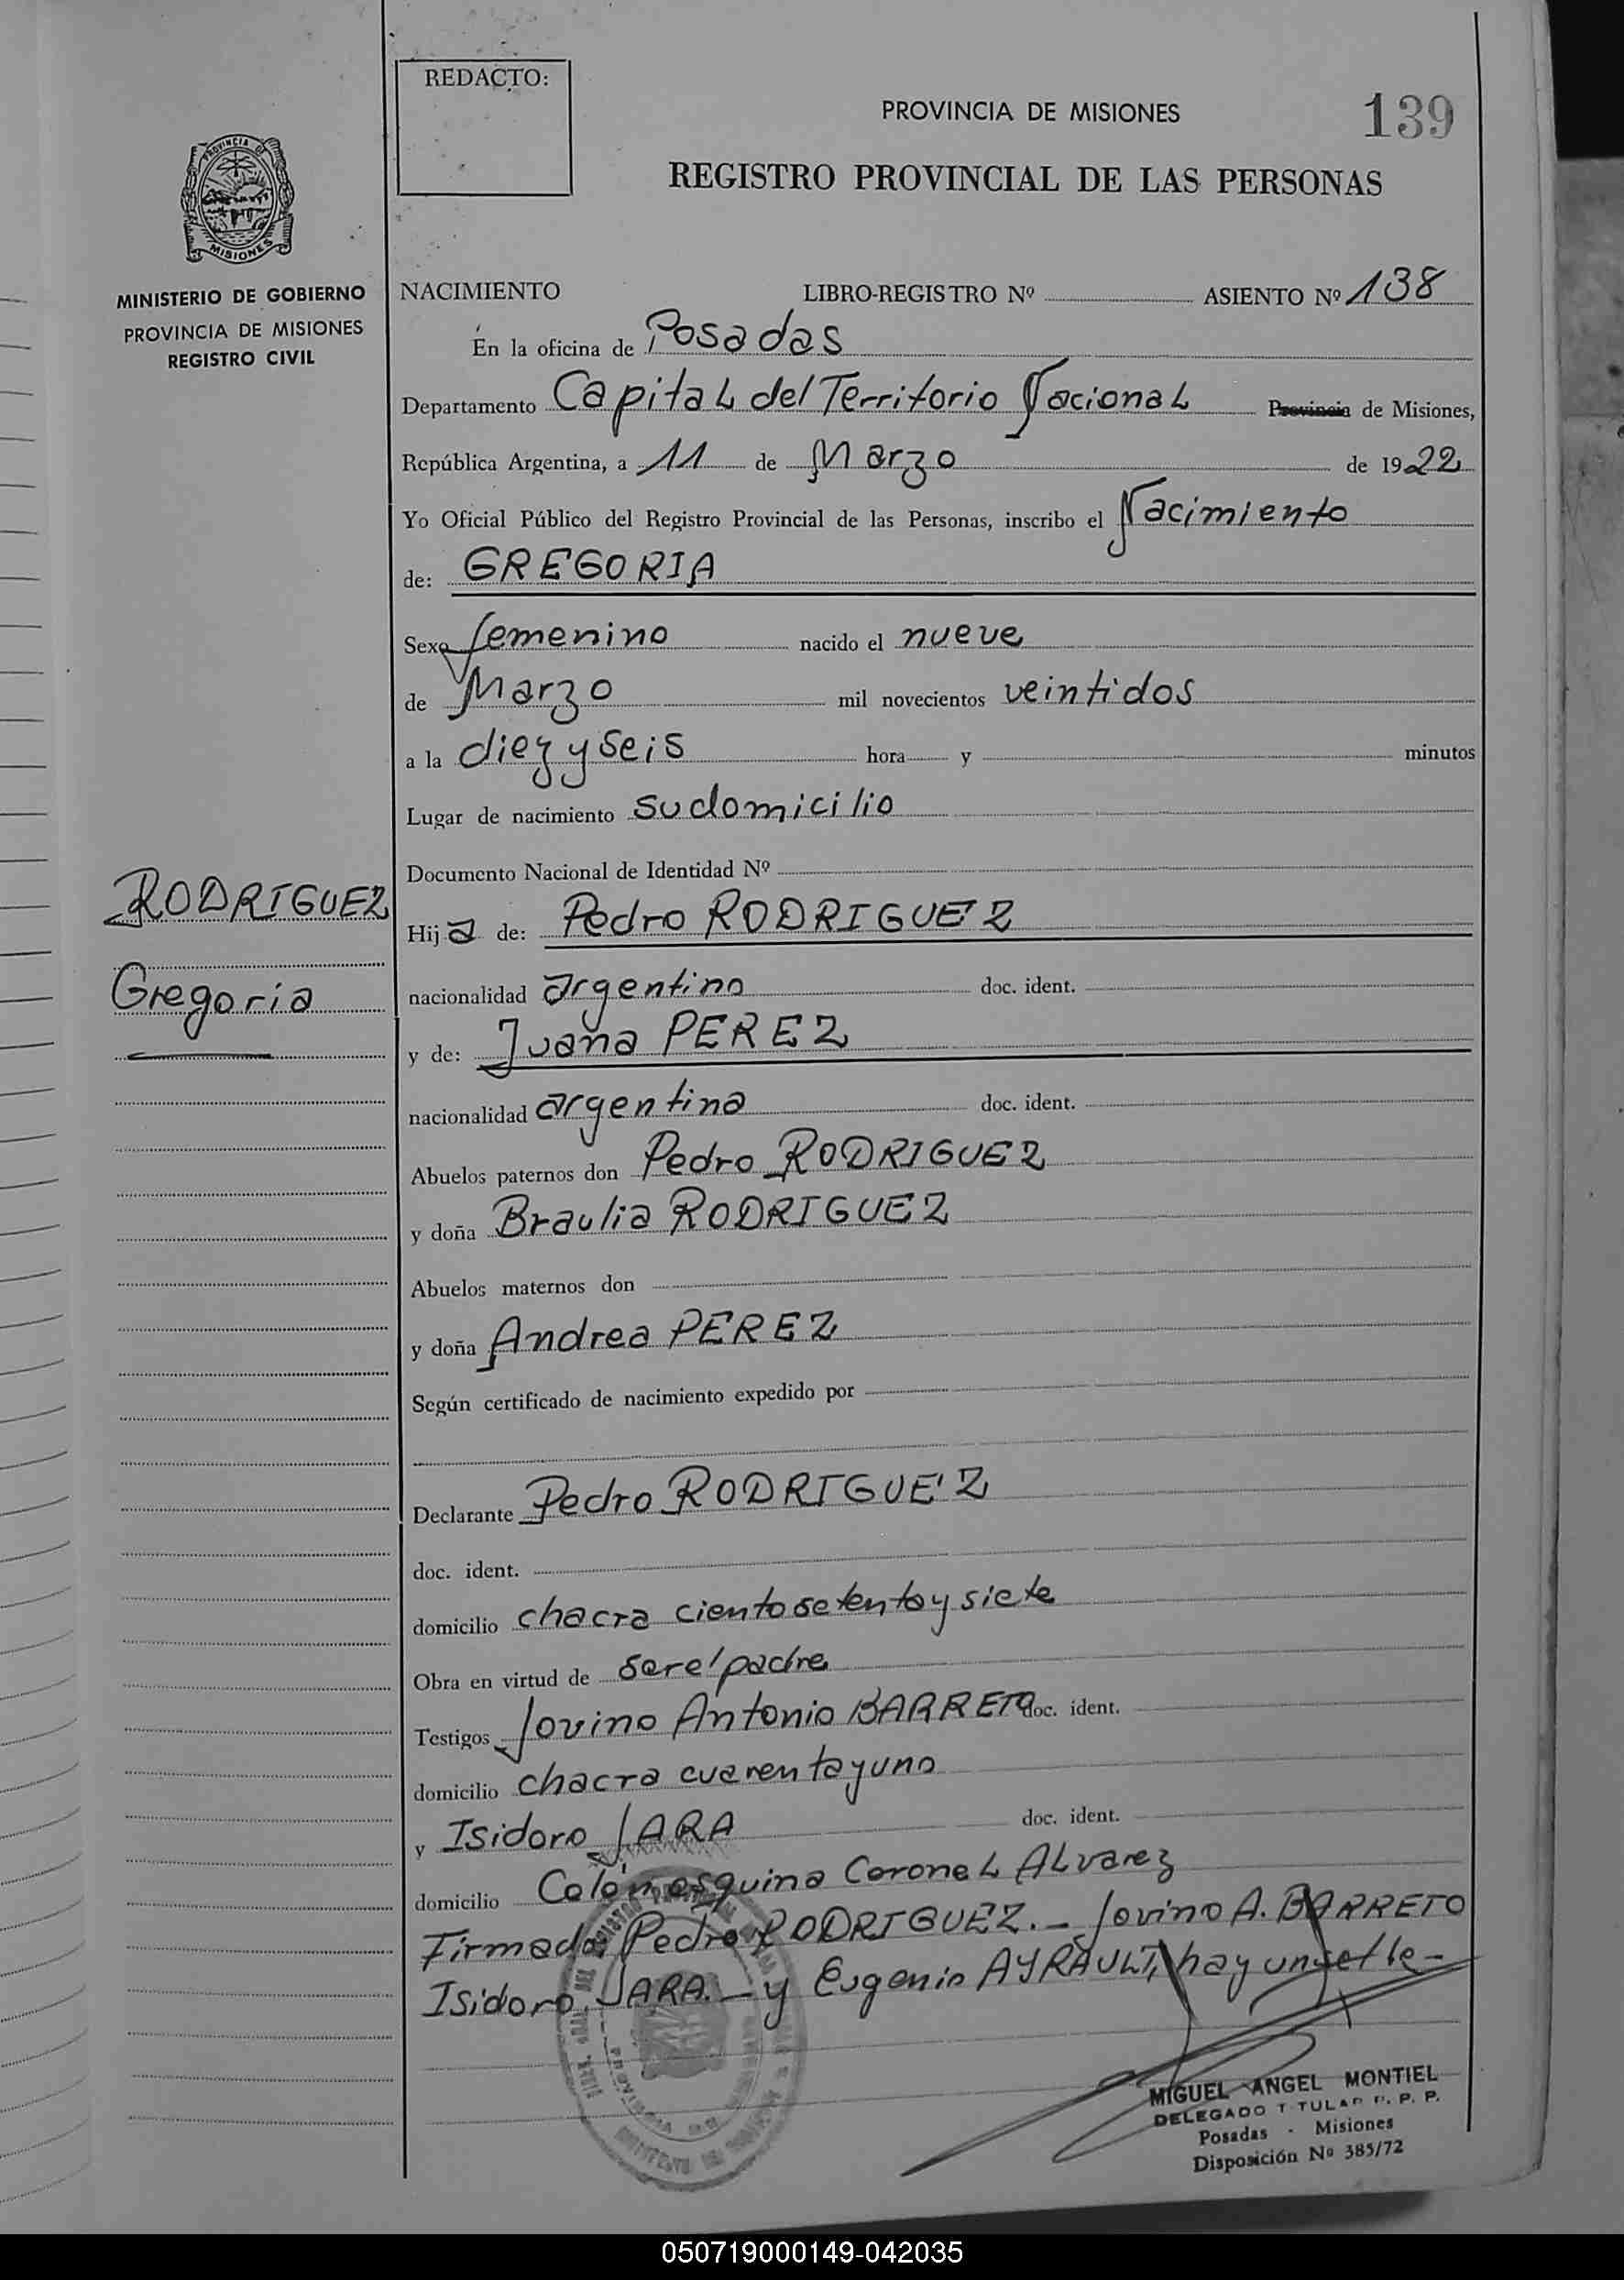 REDACTO:
PROVINCIA DE MISIONES
139
REGISTRO PROVINCIAL DE LAS PERSONAS
PROVINCIA DE
MISIONES
MINISTERIO DE GOBIERNO
PROVINCIA DE MISIONES
REGISTRO CIVIL
NACIMIENTO LIBRO-REGISTRO Nº ASIENTO Nº 138
En la oficina de Posadas
Departamento Capital del Territorio Nacional Provincia de Misiones,
República Argentina, a 11 de Marzo de 1922
Yo Oficial Público del Registro Provincial de las Personas, inscribo el Nacimiento
de: GREGORIA
Sexo femenino nacido el nueve
de Marzo mil novecientos veintidos
a la diez y seis hora y minutos
Lugar de nacimiento su domicilio
Documento Nacional de Identidad Nº
RODRIGUEZ
Gregoria
Hija de: Pedro RODRIGUEZ
nacionalidad argentino doc. ident.
y de: Juana PEREZ
nacionalidad argentina doc. ident.
Abuelos paternos don Pedro RODRIGUEZ
y doña Braulia RODRIGUEZ
Abuelos maternos don
y doña Andrea PEREZ
Según certificado de nacimiento expedido por
Declarante Pedro RODRIGUEZ
doc. ident.
domicilio chacra ciento setenta y siete
Obra en virtud de ser el padre
Testigos Jovino Antonio BARRETO doc. ident.
domicilio chacra cuarenta y uno
y Isidoro JARA doc. ident.
domicilio Colón esquina Coronel Alvarez
Firmado: Pedro RODRIGUEZ.- Jovino A. BARRETO
Isidoro JARA.- y Eugenio AYRAULT, hay un selle-
MIGUEL ANGEL MONTIEL
DELEGADO TITULAR R. P. P.
Posadas - Misiones
Disposición Nº 385/72
050719000149-042035